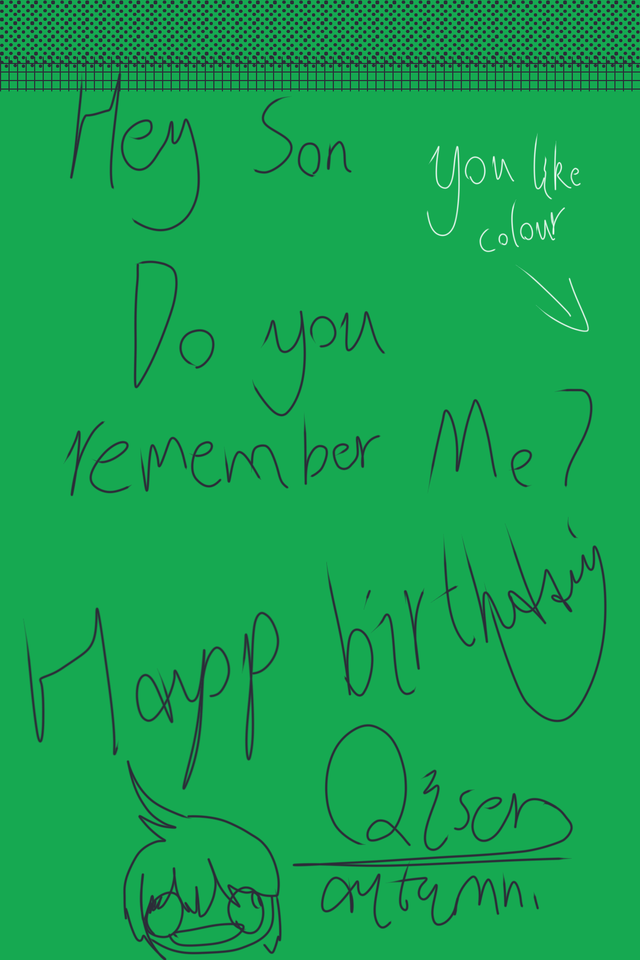 Hey Son
you like
colour
Do you
remember Me?
Happ birthday
autumn.